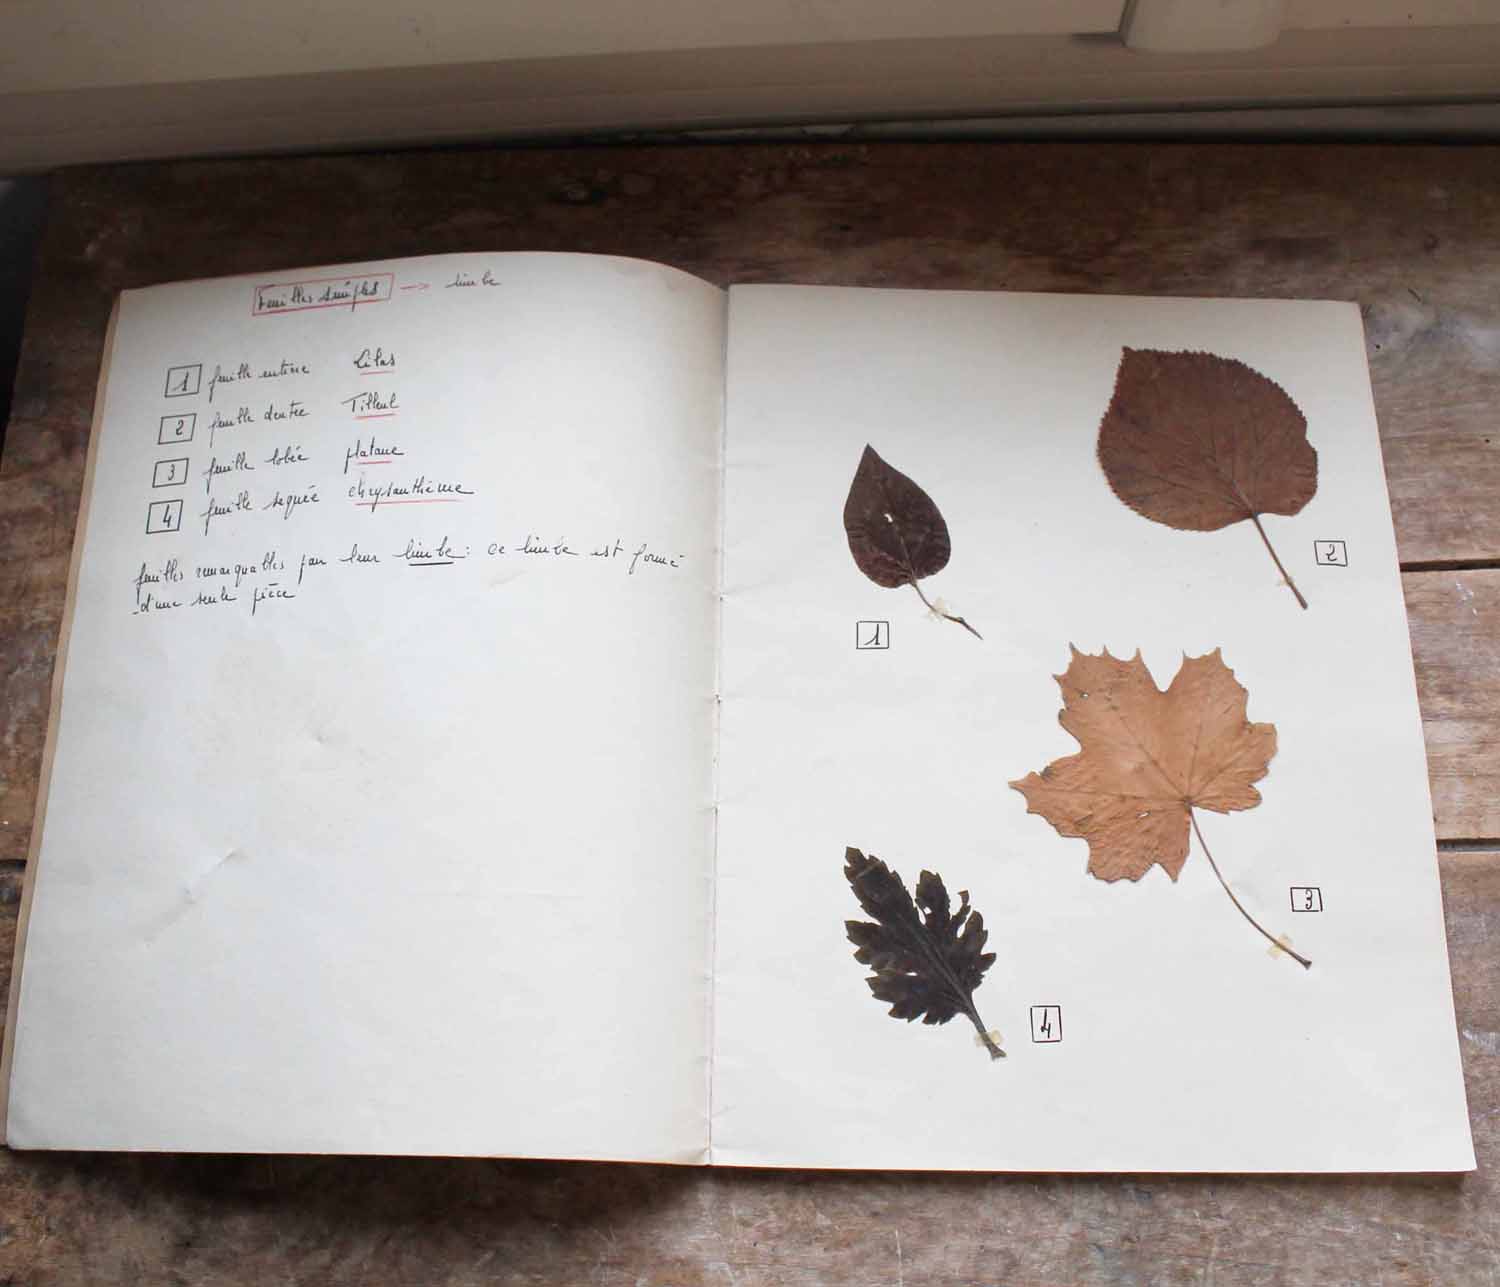 Feuilles simples → limbe
1 feuille entière Lilas
2 feuille dentée Tilleul
3 feuille lobée platane
4 feuille sequée chrysanthème
feuilles remarquables par leur limbe : ce limbe est formé
d'une seule pièce
2
1
3
4